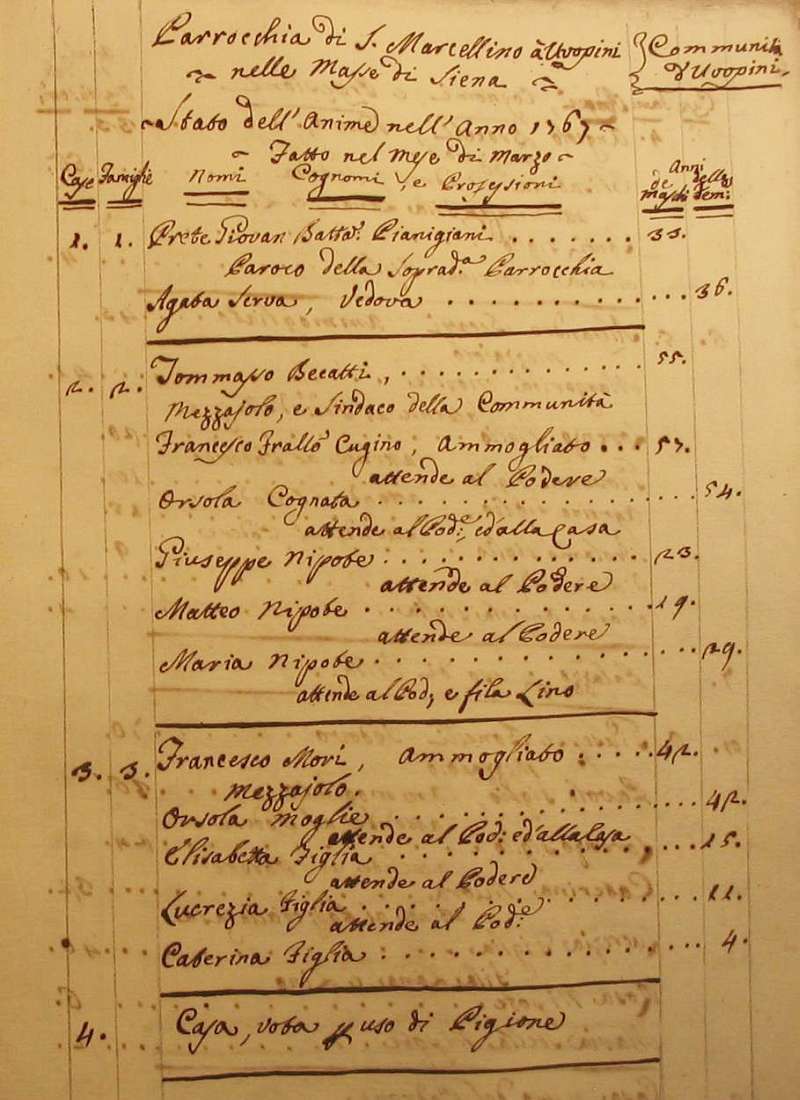 Parrocchia di S. Marcellino à Uvopini
nelle Masse di Siena
Communità
d'Uvopini.
Stato dell'Anime nell'Anno 1767
Fatto nel Mese di Marzo
Case Famiglie Nomi Cognomi, e Professioni Anni
de maschi delle fem:
1. 1. Prete Giovan Batta. Pianigiani 33.
Paroco della Soprad.a Parrocchia
Agata Serva, Vedova 36.
2. 2. Tommaso Becatti, 55.
Mezzajolo, e Sindaco della Communità
Francesco Frallo Cugino, Ammogliato 57.
attende al Podere
Orsola Cognata 54.
attende al Pod.e, ed'alla Casa
Giuseppe Nipote 23.
attende al Podere
Matteo Nipote 19.
attende al Podere
Maria Nipote 29.
attende al Pod; e fila Lino
3. 3. Francesco Mori, Ammogliato 42.
Mezzajolo.
Orsola Moglie 42.
attende al Pod: ed'alla Casa
Elisabetta Figlia 15.
attende al Podere
Lucrezia Figlia 11.
attende al Pod.e
Caterina Figlia 4.
4. Casa, vota p uso di Pigione